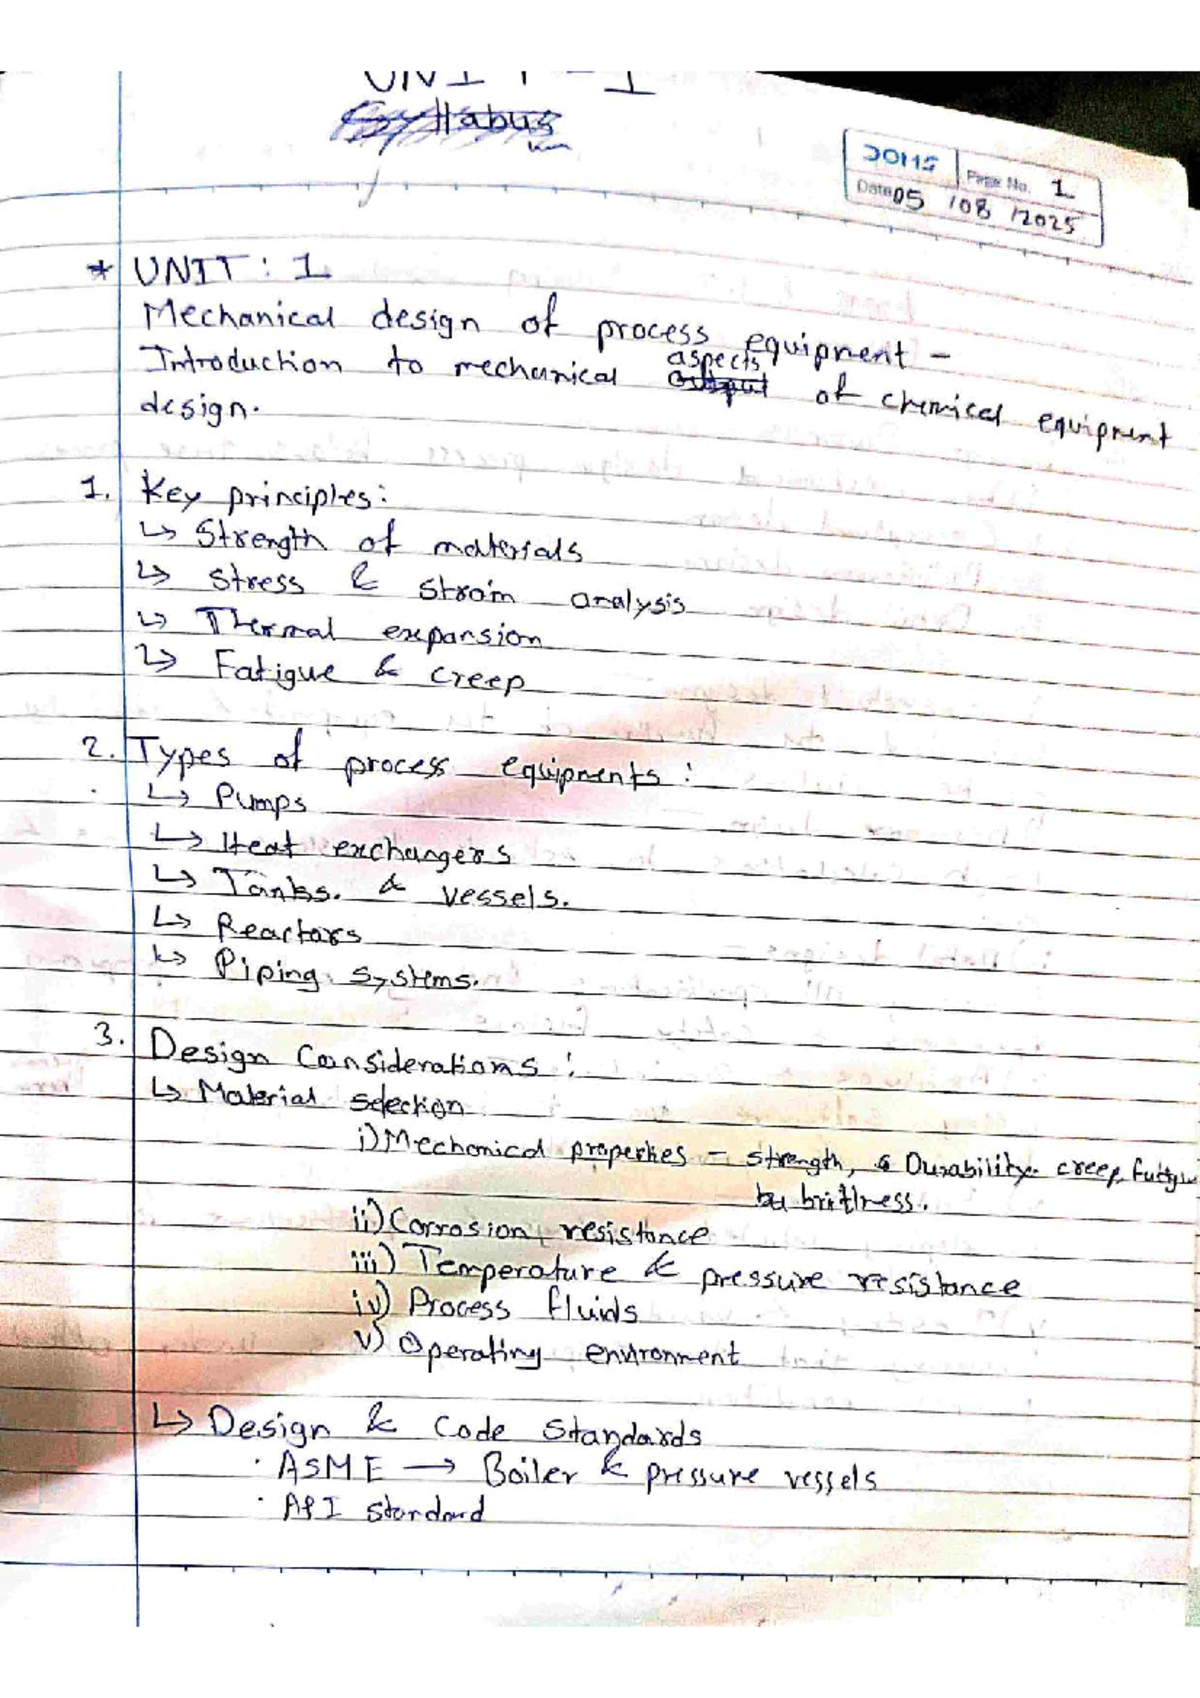 UNIT - I
Syllabus
DOMS
Page No. 1
Date 05 / 08 / 2025
* UNIT : 1
Mechanical design of process equipment -
Introduction to mechanical aspects of chemical equipment
design.
1. Key principles:
↳ Strength of materials
↳ Stress & strain analysis
↳ Thermal expansion
↳ Fatigue & creep
2. Types of process equipments :
↳ Pumps
↳ Heat exchangers
↳ Tanks. & vessels.
↳ Reactors
↳ Piping systems.
3. Design Considerations :
↳ Material selection
i) Mechanical properties - strength, Durability. creep,
britlness.
ii) Corrosion resistance
iii) Temperature & pressure resistance
iv) Process fluids
v) Operating environment
↳ Design & Code Standards
· ASME → Boiler & pressure vessels
· API standard